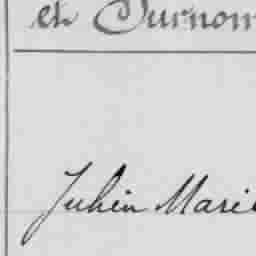 et Surnom
Julien Marie